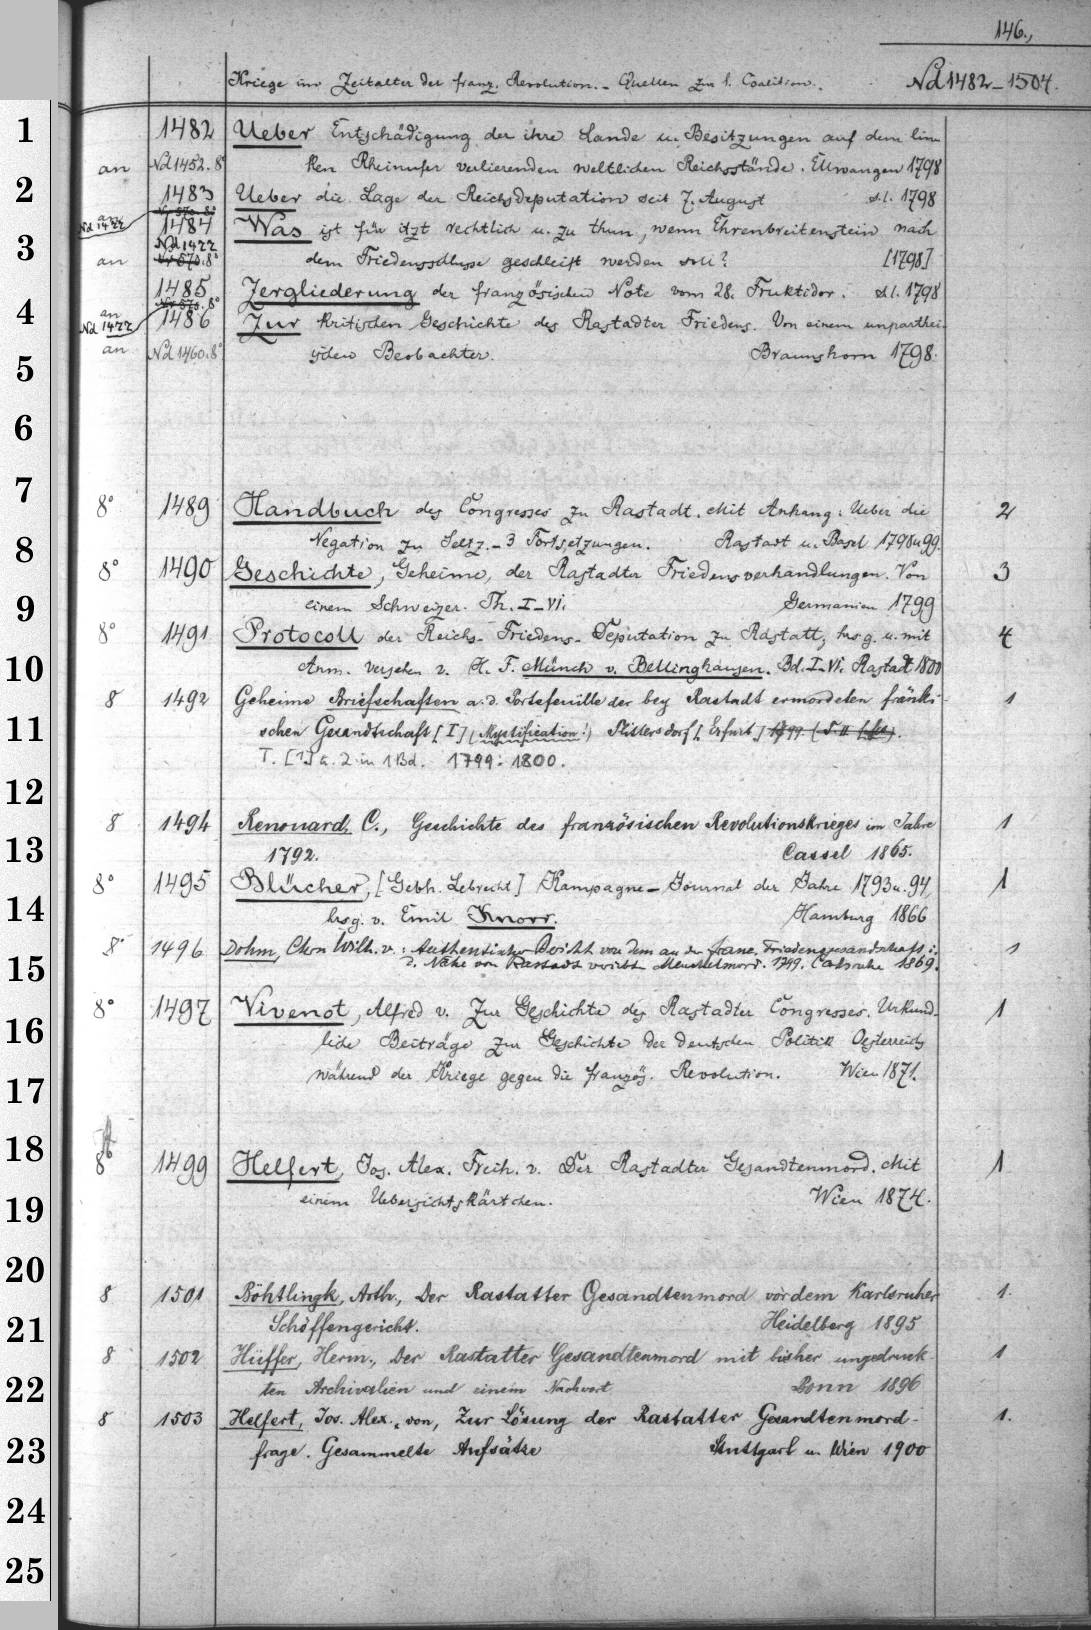 146.,
Kriege im Zeitalter der franz. Revolution. - Quellen zur 1. Coalition. Nd 1482-1504.
1
1482 Ueber Entschädigung der ihre Lande u. Besitzungen auf dem lin-
an Nd 1452. 8° ken Rheinufer verlierenden weltlichen Reichsstände. Ellwangen 1798
2
1483 Ueber die Lage der Reichsdeputation seit 7. August s.l. 1798
an Nr 570. 8°
Nd 1422
1484 Was ist für itzt rechtlich u. zu thun, wenn Ehrenbreitenstein nach
3
Nd 1422
an Nr 570. 8° dem Friedensschlusse geschleift werden soll? [1798]
1485 Zergliederung der französischen Note vom 28. Fruktidor. s.l. 1798
an Nr 570. 8°
4
Nd 1422
1486 Zur kritischen Geschichte des Rastadter Friedens. Von einem unparthei-
an Nd 1460. 8° ischen Beobachter. Braunshorn 1798.
5
6
7
8° 1489 Handbuch des Congresses zu Rastadt. Mit Anhang: Ueber die 2
8
Negation zu Seltz. - 3 Fortsetzungen. Rastadt u. Basel 1798 u 99.
8° 1490 Geschichte, Geheime, der Rastadter Friedensverhandlungen. Von 3
9
einem Schweizer. Th. I-VI. Germanien 1799
8° 1491 Protocoll der Reichs-Friedens-Deputation zu Rastatt, hrsg. u. mit 4
10
Anm. versehen v. H. F. Münch v. Bellinghausen. Bd. I-VI. Rastadt 1800
8 1492 Geheime Briefschaften a. d. Portefeuille der bey Rastadt ermordeten fränki- 1
11
schen Gesandtschaft [I] (Mystification!) Plittersdorf [Erfurt] 1799.
T. [1] a. 2 in 1 Bd. 1799-1800.
12
8 1494 Renouard, C., Geschichte des französischen Revolutionskrieges im Jahre 1
13
1792. Cassel 1865.
8° 1495 Blücher, [Gebh. Lebrecht] Kampagne-Journal der Jahre 1793 u. 94, 1
14
hrsg. v. Emil Knorr. Hamburg 1866
8° 1496 Dohm, Chrn Wilh. v.: Authentischer Bericht von dem an der franz. Friedensgesandtschaft i. 1
15
d. Nähe von Rastadt verübt. Meuchelmord. 1799. Carlsruhe 1869.
8° 1497 Vivenot, Alfred v. Zur Geschichte des Rastadter Congresses. Urkund- 1
16
liche Beiträge zur Geschichte der deutschen Politik Oesterreichs
während der Kriege gegen die französ. Revolution. Wien 1871.
17
18
8° 1499 Helfert, Jos. Alex. Freih. v. Der Rastadter Gesandtenmord. Mit 1
19
einem Uebersichtskärtchen. Wien 1874.
20
8 1501 Böhtlingk, Arth., Der Rastatter Gesandtenmord vor dem Karlsruher 1.
21
Schöffengericht. Heidelberg 1895
8 1502 Hüffer, Herm., Der Rastatter Gesandtenmord mit bisher ungedruck- 1
22
ten Archivalien und einem Nachwort Bonn 1896
8 1503 Helfert, Jos. Alex., von, Zur Lösung der Rastatter Gesandtenmord- 1.
23
frage. Gesammelte Aufsätze Stuttgart u. Wien 1900
24
25